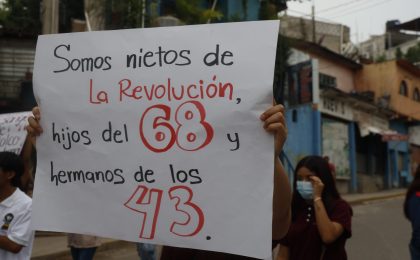 Somos nietos de
La Revolución,
hijos del 68 y
hermanos de los
43.